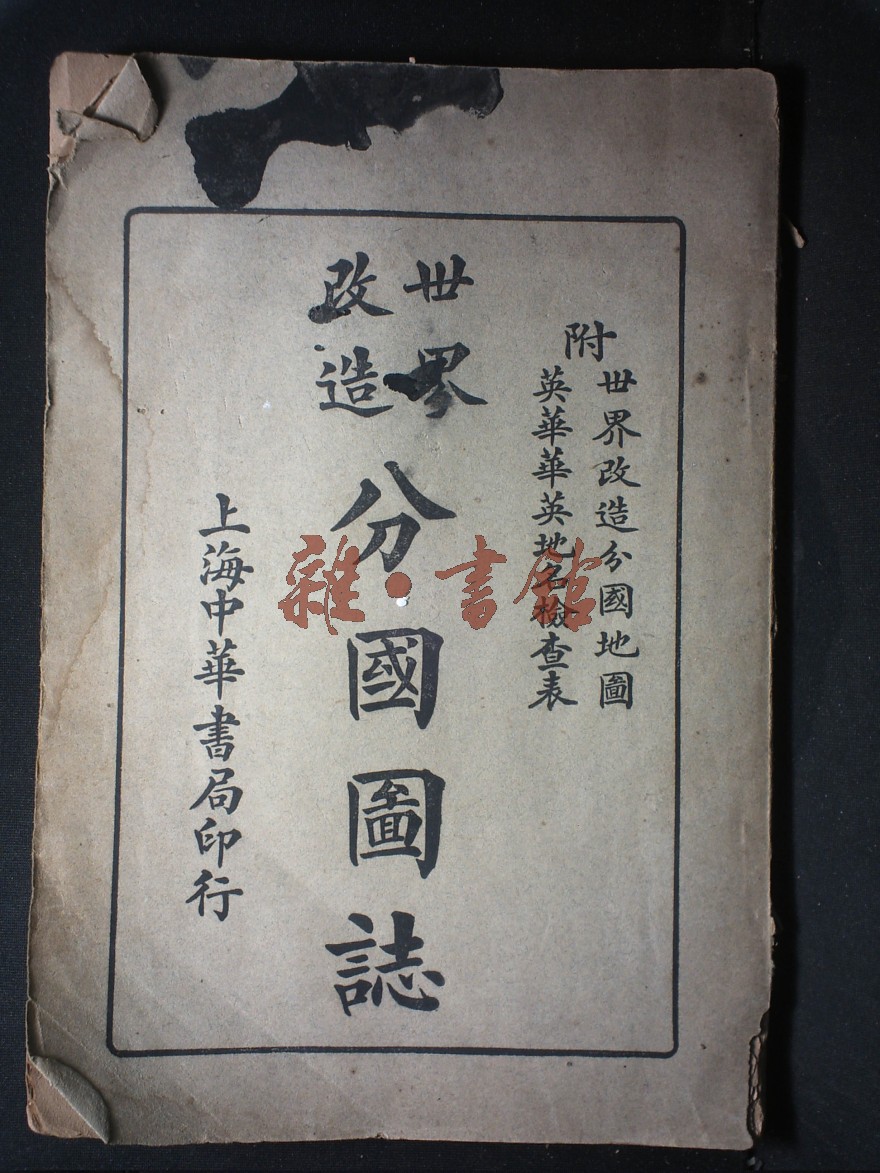 附
世界改造分國地圖
英華華英地名檢查表
世界
改造
分國圖誌
上海中華書局印行
雜·書館